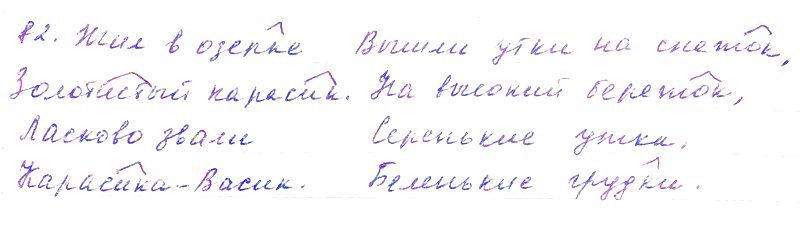 82. Жил в озерке Вышли утки на снежок,
Золотистый карасик. На высокий бережок,
Ласково звали Серенькие утки.
Карасика-Васик. Беленькие грудки.